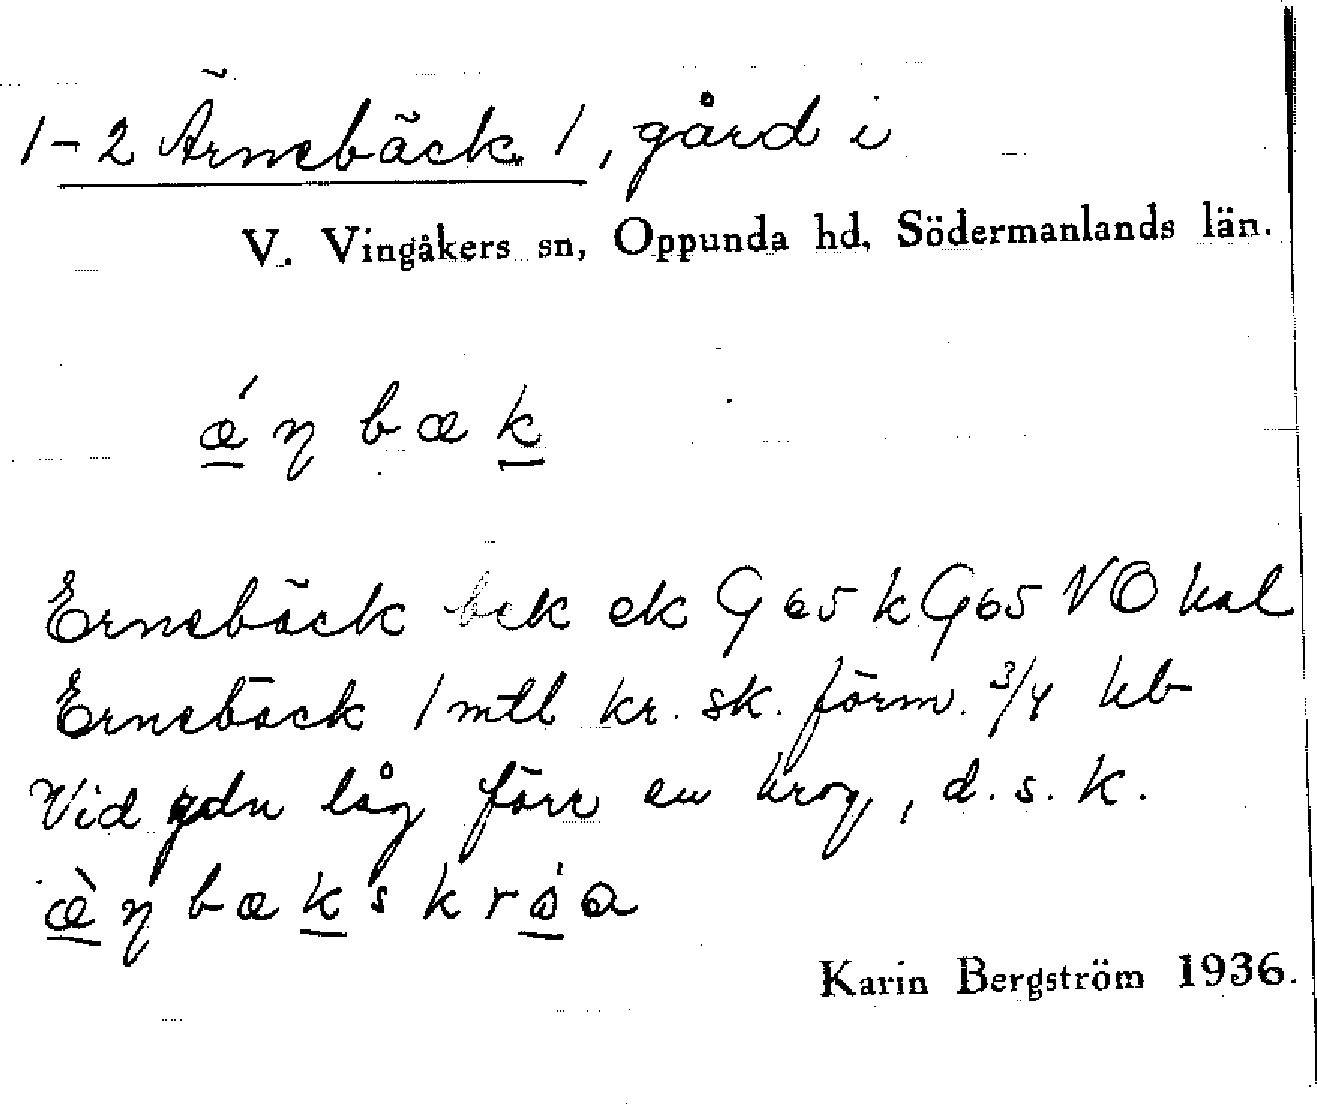 1-2 Ärnebäck 1, gård i
V. Vingåkers sn, Oppunda hd, Södermanlands län.
ǽ η b æ k
Ernebäck bek ek G 65 k G 65 NO hal
Ernebäck 1 mtl kr. sk. förm. 3/4 hb
Vid gdn låg förr en krog, d.s.k.
æ̀ η b æ k s k r ó a
Karin Bergström 1936.